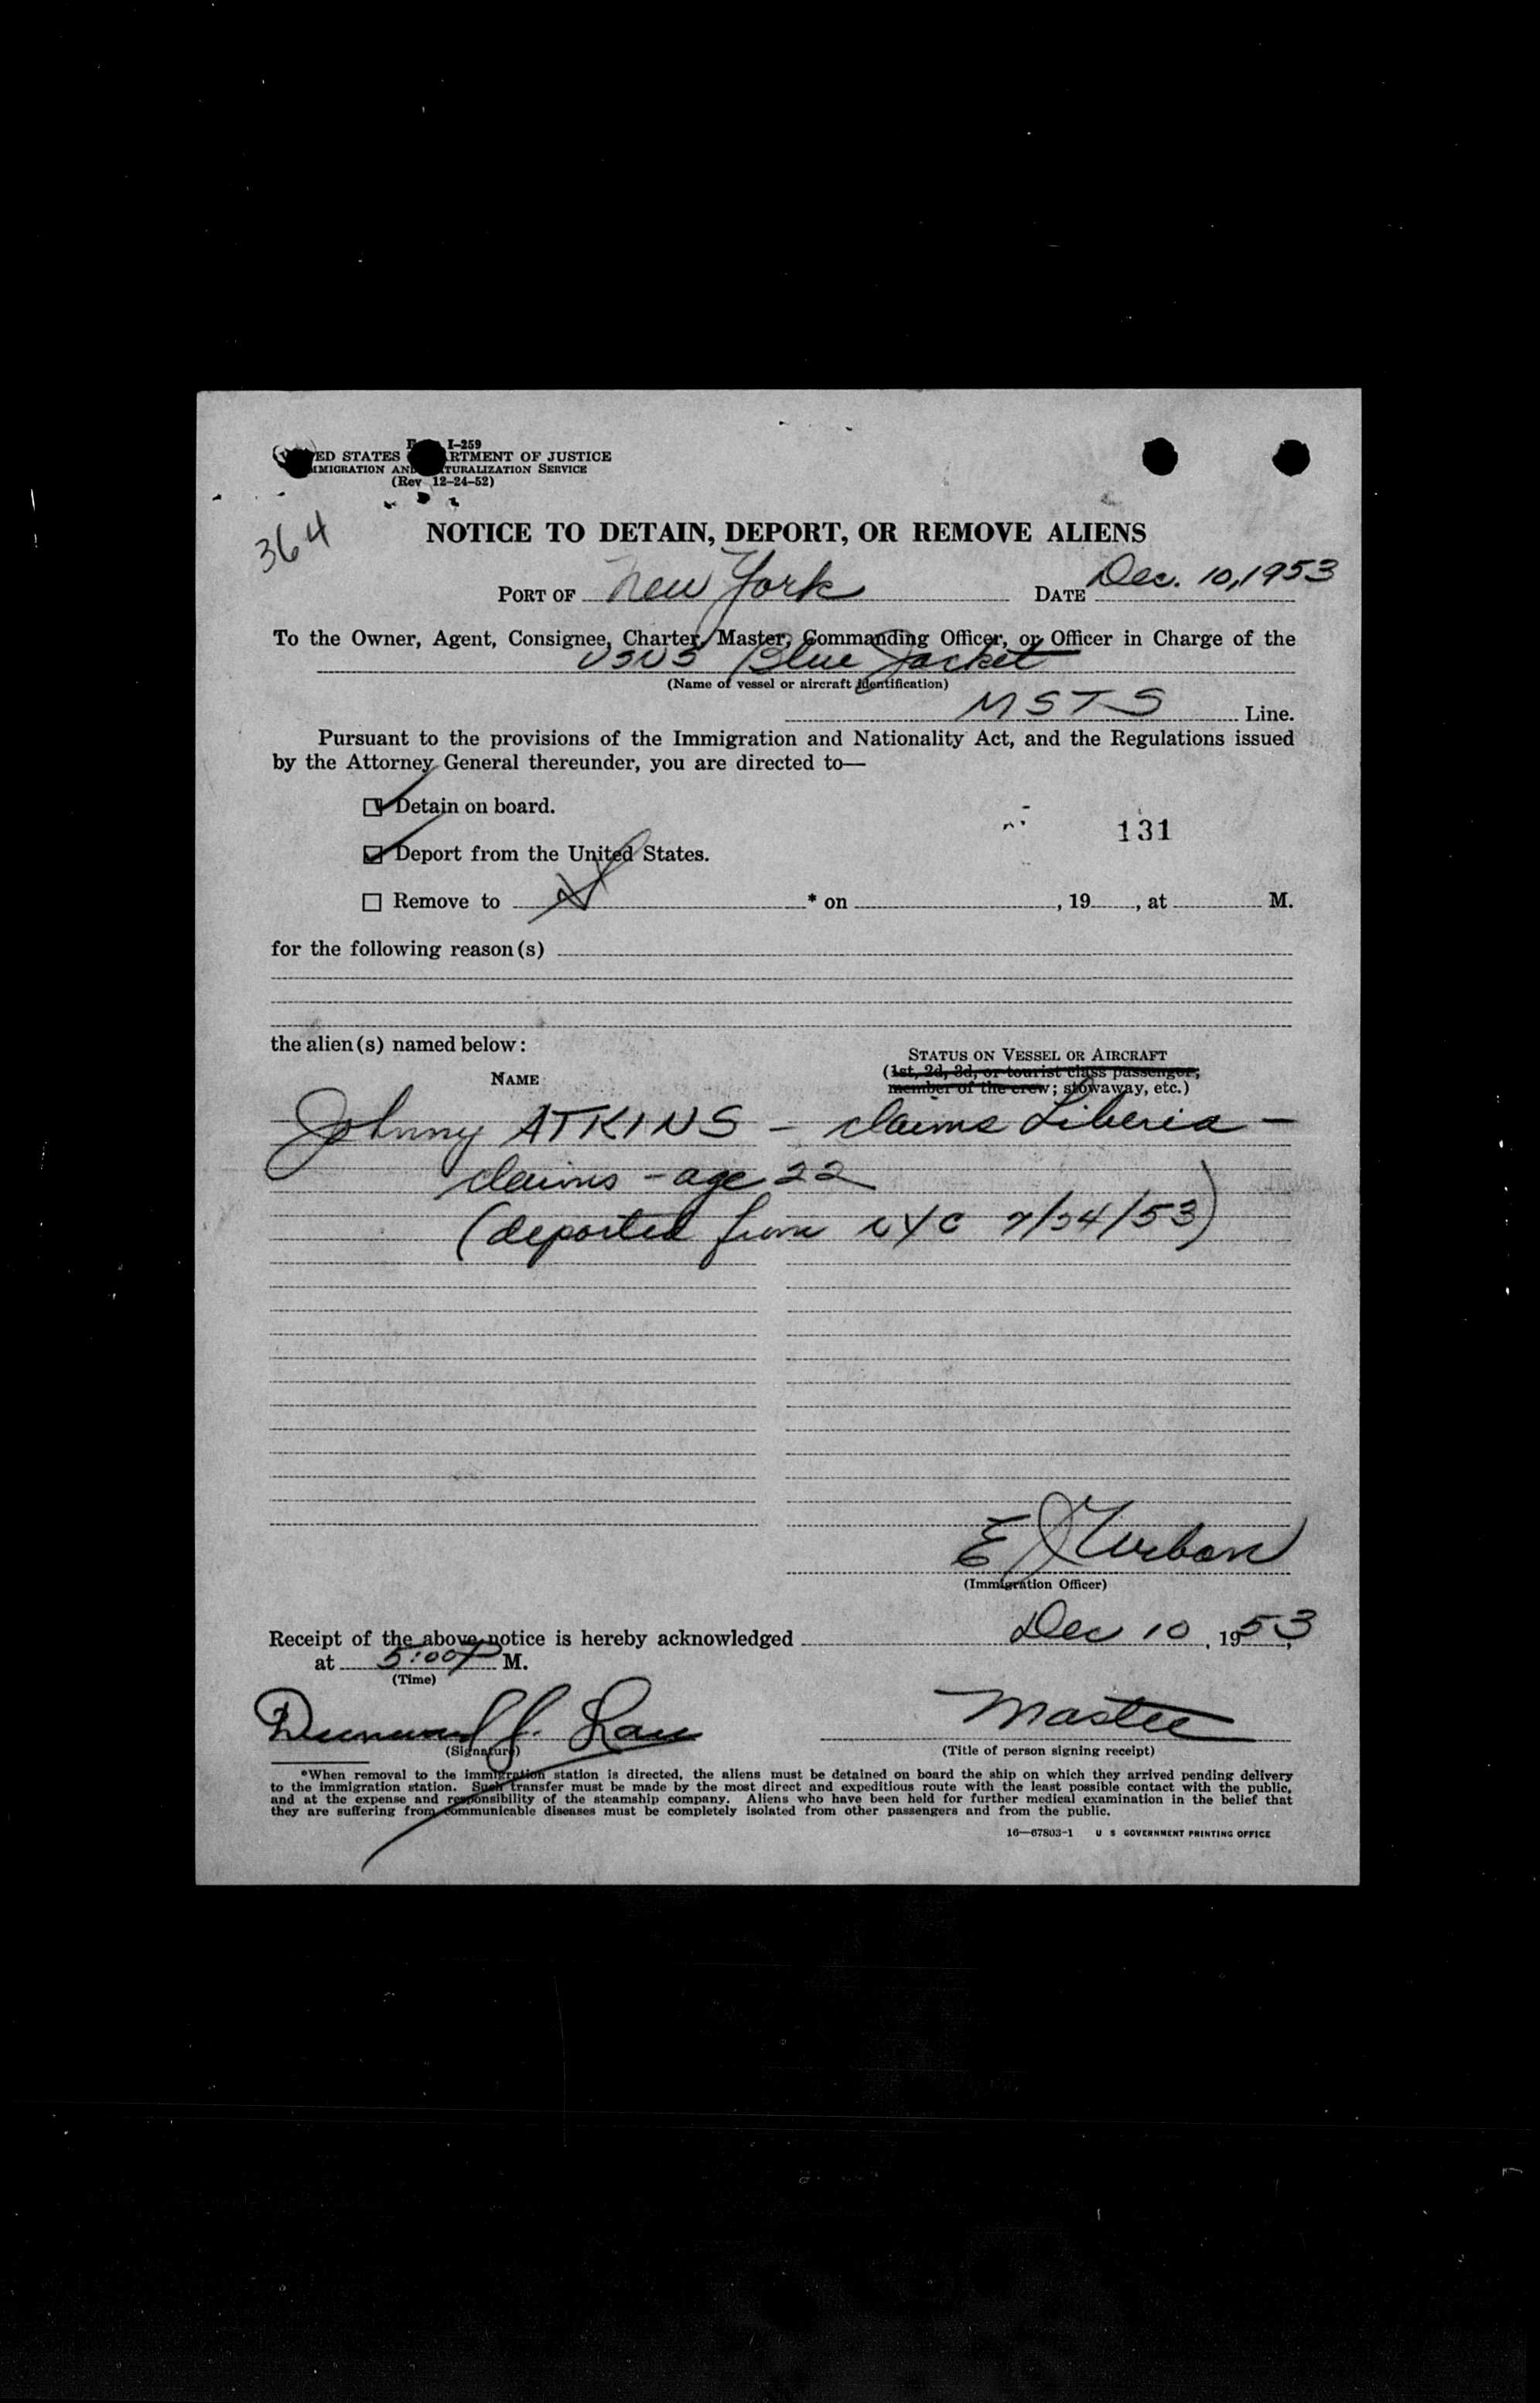 I-259
ED STATES RTMENT OF JUSTICE
MMIGRATION AND TURALIZATION SERVICE
(Rev 12-24-52)
364
NOTICE TO DETAIN, DEPORT, OR REMOVE ALIENS
PORT OF New York DATE Dec. 10, 1953
To the Owner, Agent, Consignee, Charter, Master, Commanding Officer, or Officer in Charge of the
USNS Blue Jacket
(Name of vessel or aircraft identification)
MSTS Line.
Pursuant to the provisions of the Immigration and Nationality Act, and the Regulations issued
by the Attorney General thereunder, you are directed to—
Detain on board.
131
Deport from the United States.
Remove to * on , 19 , at M.
for the following reason(s)
the alien(s) named below:
STATUS ON VESSEL OR AIRCRAFT
NAME
(1st, 2d, 3d, or tourist class passenger,
member of the crew; stowaway, etc.)
Johnny ATKINS - claims Liberia -
claims - age 22
(deported from NYC 7/24/53)
E J Urban
(Immigration Officer)
Receipt of the above notice is hereby acknowledged Dec 10, 1953,
at 5:00 P M.
(Time)
Master
(Signature) (Title of person signing receipt)
*When removal to the immigration station is directed, the aliens must be detained on board the ship on which they arrived pending delivery
to the immigration station. Such transfer must be made by the most direct and expeditious route with the least possible contact with the public,
and at the expense and responsibility of the steamship company. Aliens who have been held for further medical examination in the belief that
they are suffering from communicable diseases must be completely isolated from other passengers and from the public.
16—67803-1 U S GOVERNMENT PRINTING OFFICE